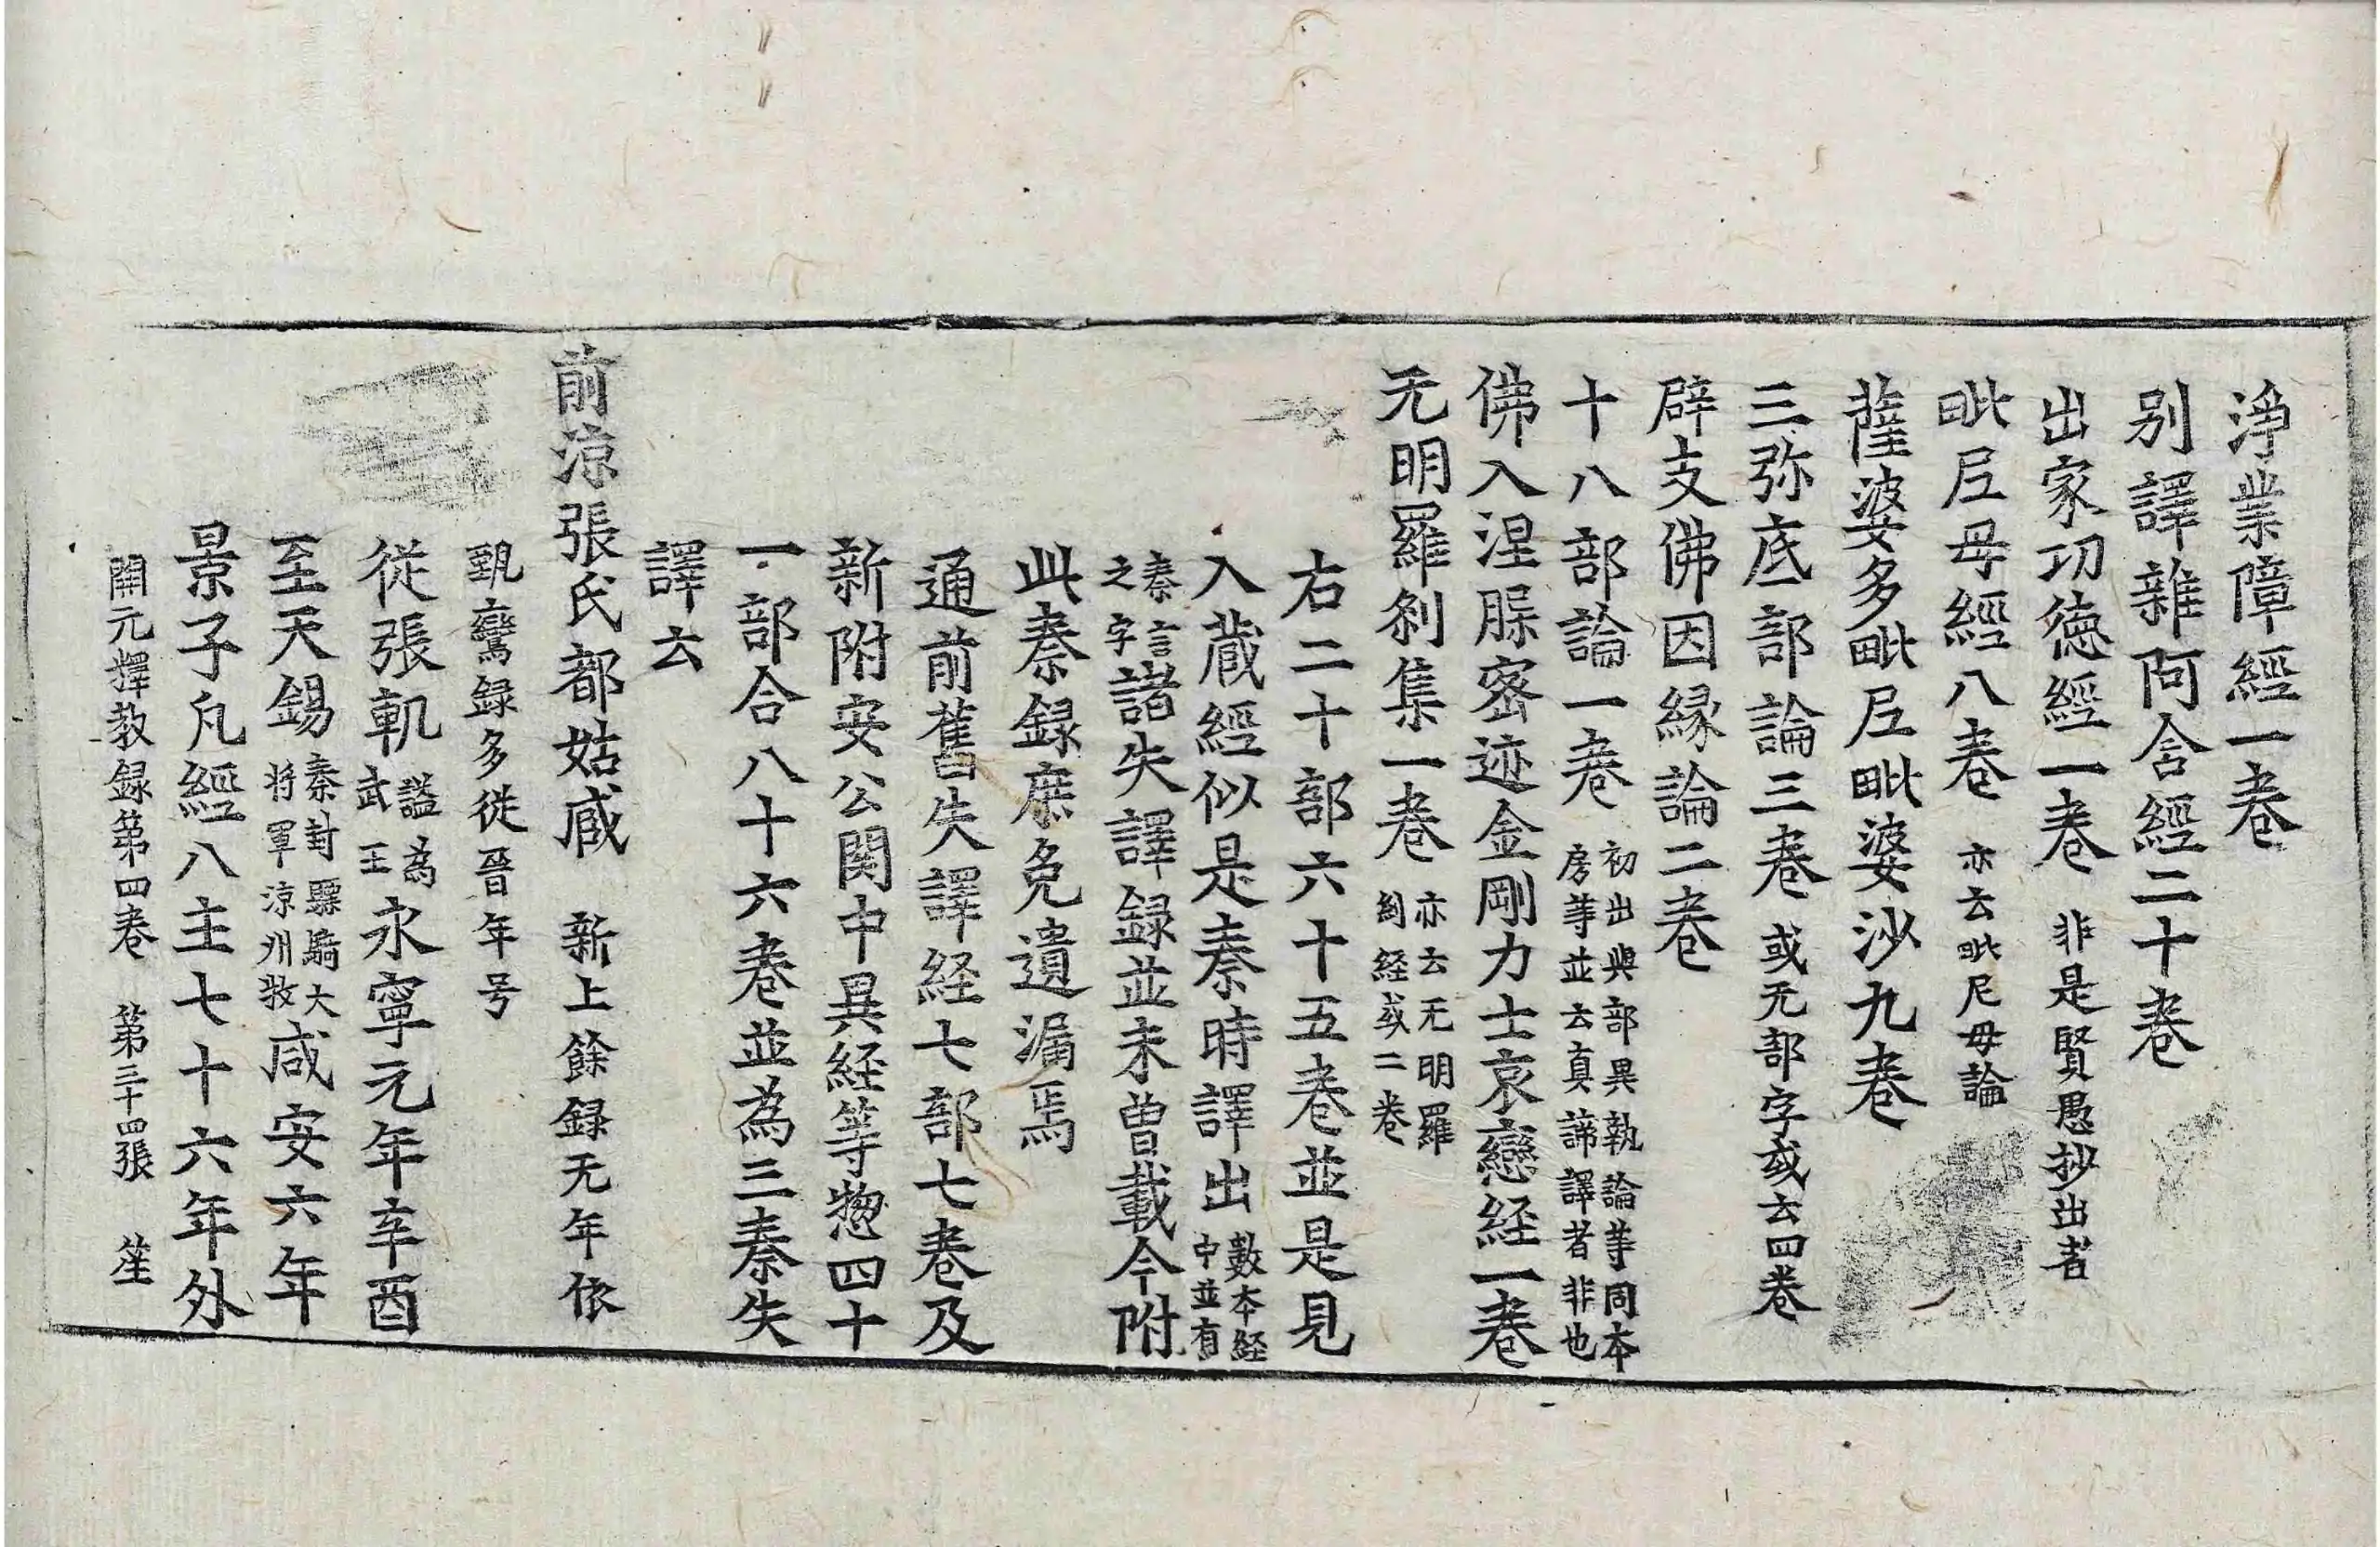 淨業障經一卷
別譯雜阿含經二十卷
出家功德經一卷 非是賢愚抄出者
毗尼母經八卷 亦云毗尼母論
薩婆多毗尼毗婆沙九卷
三弥底部論三卷 或无部字或云四卷
辟支佛因緣論二卷
十八部論一卷 初出與部異執論等同本房等並云真諦譯者非也
佛入涅槃密迹金剛力士哀戀経一卷
无明羅剎集一卷 亦云无明羅剎経或二卷
右二十部六十五卷並是見
入藏經似是秦時譯出 數本経中並有
秦言之字 諸失譯錄並未曾載今附
此秦録庶免遺漏焉
通前舊失譯経七部七卷及
新附安公関中異経等惣四十
一部合八十六卷並為三秦失
譯云
前涼張氏都姑臧 新上餘録无年依
甄鸞録多從晉年号
從張軌 謚為武王 永寧元年辛酉
至天錫 秦封驃騎大將軍涼州牧 咸安六年
景子凡經八主七十六年外
開元釋教録第四卷 第三十四張 笙